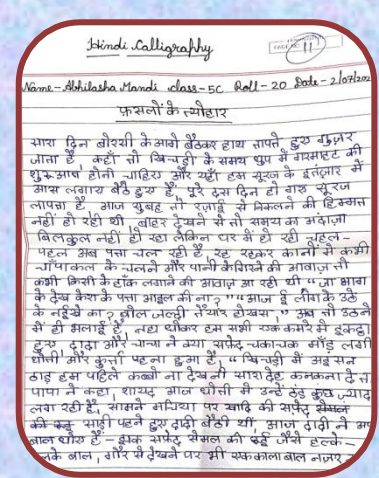 Hindi Calligraphy
11
Name - Abhilasha Mandi class - 5C Roll - 20 Date - 2/07/202
फ़सलों के त्योहार
सारा दिन बोरसी के आगे बैठकर हाथ तापते हुए गुज़र
जाता है, कहाँ तो खिचड़ी के समय धूप में गरमाहट की
शुरुआत होनी चाहिए और यहाँ हम सूरज के इंतज़ार में
आस लगाए बैठे हुए हैं, पूरे दस दिन हो गए सूरज
लापता है आज सुबह तो रज़ाई से निकलने की हिम्मत
नहीं हो रही थी बाहर देखने से तो समय का अंदाज़ा
बिलकुल नहीं हो रहा लेकिन घर में हो रही चहल-
पहल अब पता चल रही है, रह रहकर कानों में कभी
चाँपाकल के चलने और पानी के गिरने की आवाज़ तो
कभी किसी के हाँक लगाने की आवाज़ आ रही थी "जा भाग
के देख केरा के पत्ता आइल की ना?" "आज ई लोग के उठे
के नईखे का? बोल जल्दी तैयार होखस," अब तो उठने
में ही भलाई है, नहा धोकर हम सभी एक कमरे में इकट्ठा
हुए दादा और चाचा ने क्या सफ़ेद चकाचक माँड़ लगी
धोती और कुर्ता पहना हुआ है, "खिचड़ी में अइसन
ठाड़ हम पहिले कब्बो ना देखनी सारा देह कनकना दे त
पापा ने कहा, शायद आज धोती में उन्हें ठंड कुछ ज़्याद
लग रही है, सामने मचिया पर खादी की सफ़ेद सेमल
साड़ी पहने हुए दादी बैठी थीं आज दादी ने अप
बाल धोए हैं - झक सफ़ेद सेमल की रुई जैसे हल्के-
लके बाल, गौर से देखने पर भी एक काला बाल नज़र